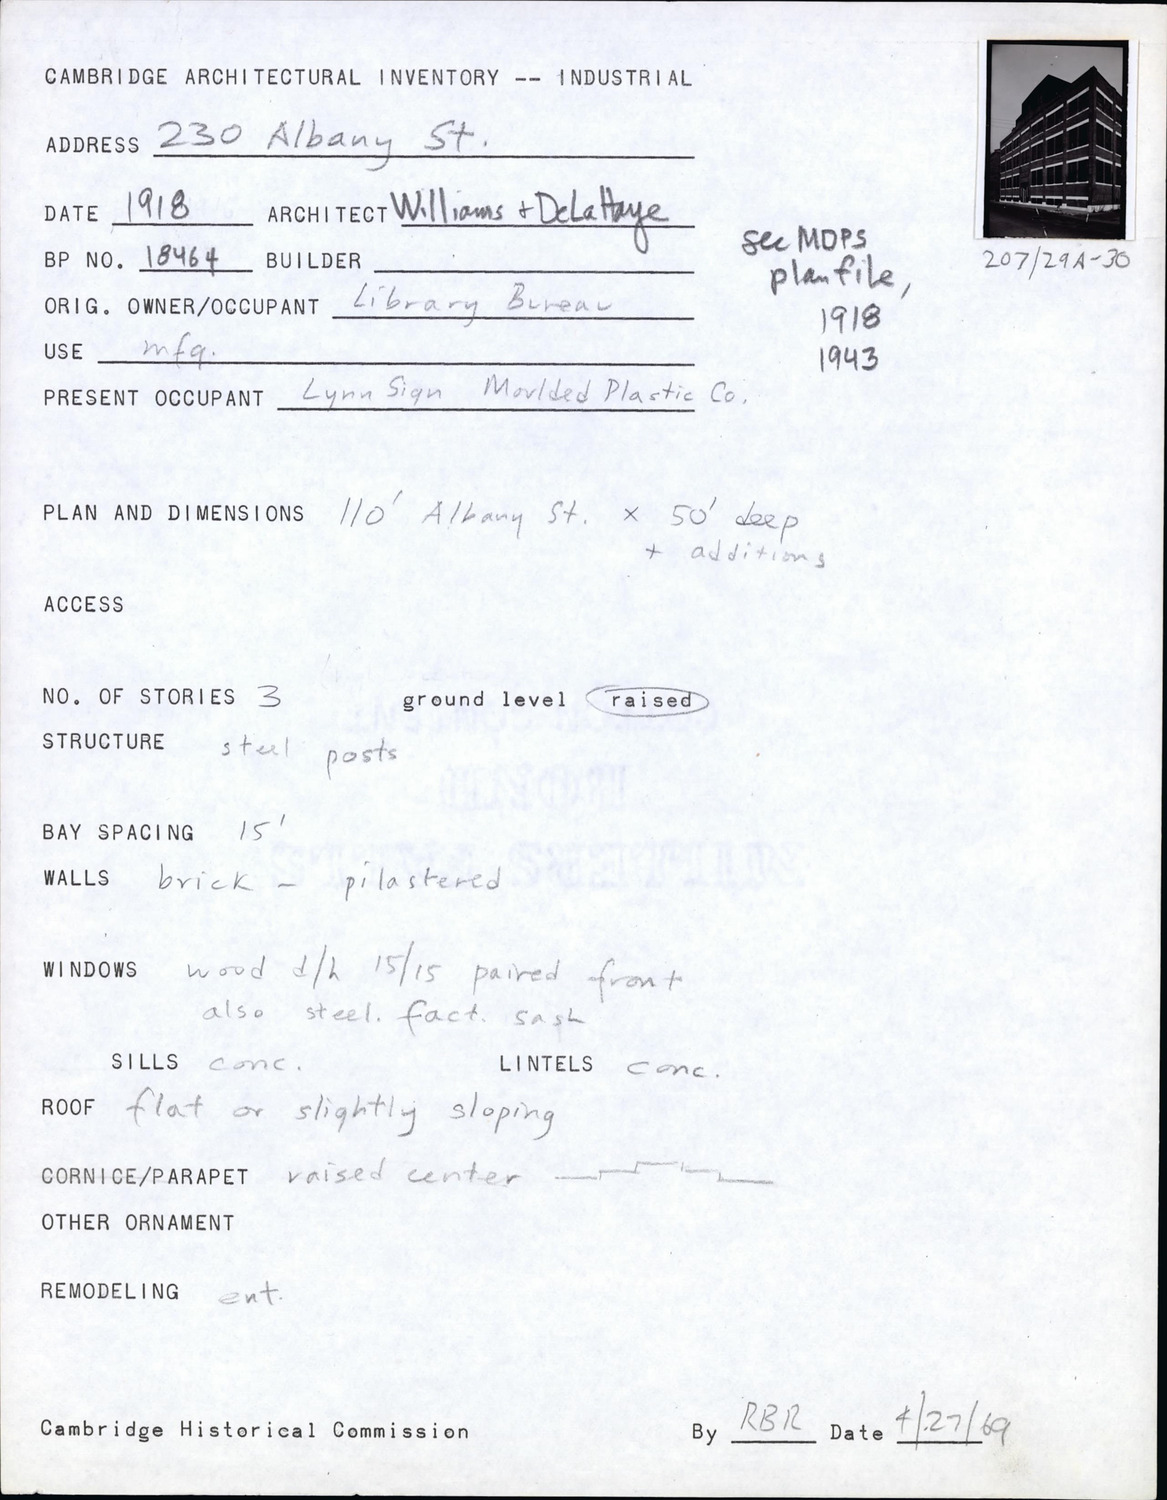 CAMBRIDGE ARCHITECTURAL INVENTORY -- INDUSTRIAL
ADDRESS 230 Albany St.
DATE 1918 ARCHITECT Williams + DeLaHaye
BP NO. 18464 BUILDER
see MDPS
planfile,
1918
1943
207/29A-30
ORIG. OWNER/OCCUPANT Library Bureau
USE mfg.
PRESENT OCCUPANT Lynn Sign Moulded Plastic Co.
PLAN AND DIMENSIONS 110' Albany St. x 50' deep
+ additions
ACCESS
NO. OF STORIES 3 ground level raised
STRUCTURE steel posts
BAY SPACING 15'
WALLS brick - pilastered
WINDOWS wood d/h 15/15 paired front
also steel. fact. sash
SILLS conc. LINTELS conc.
ROOF flat or slightly sloping
CORNICE/PARAPET raised center
OTHER ORNAMENT
REMODELING ent.
Cambridge Historical Commission By RBR Date 4/27/69